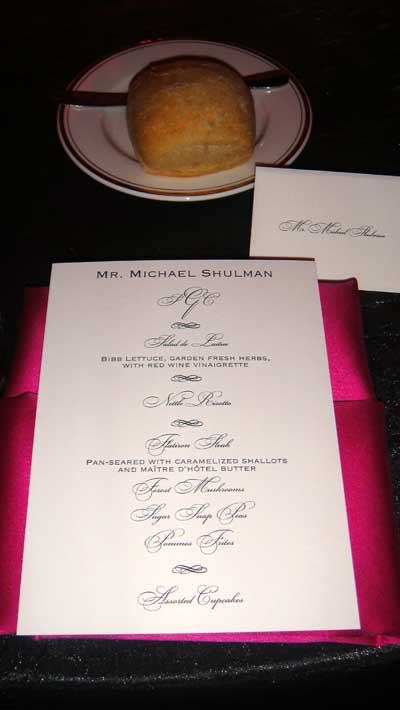 Mr. Michael Shulman
MR. MICHAEL SHULMAN
Salad de Laitue
BIBB LETTUCE, GARDEN FRESH HERBS,
WITH RED WINE VINAIGRETTE
Nettle Risotto
Flatiron Steak
PAN-SEARED WITH CARAMELIZED SHALLOTS
AND MAÎTRE D'HÔTEL BUTTER
Forest Mushrooms
Sugar Snap Peas
Pommes Frites
Assorted Cupcakes